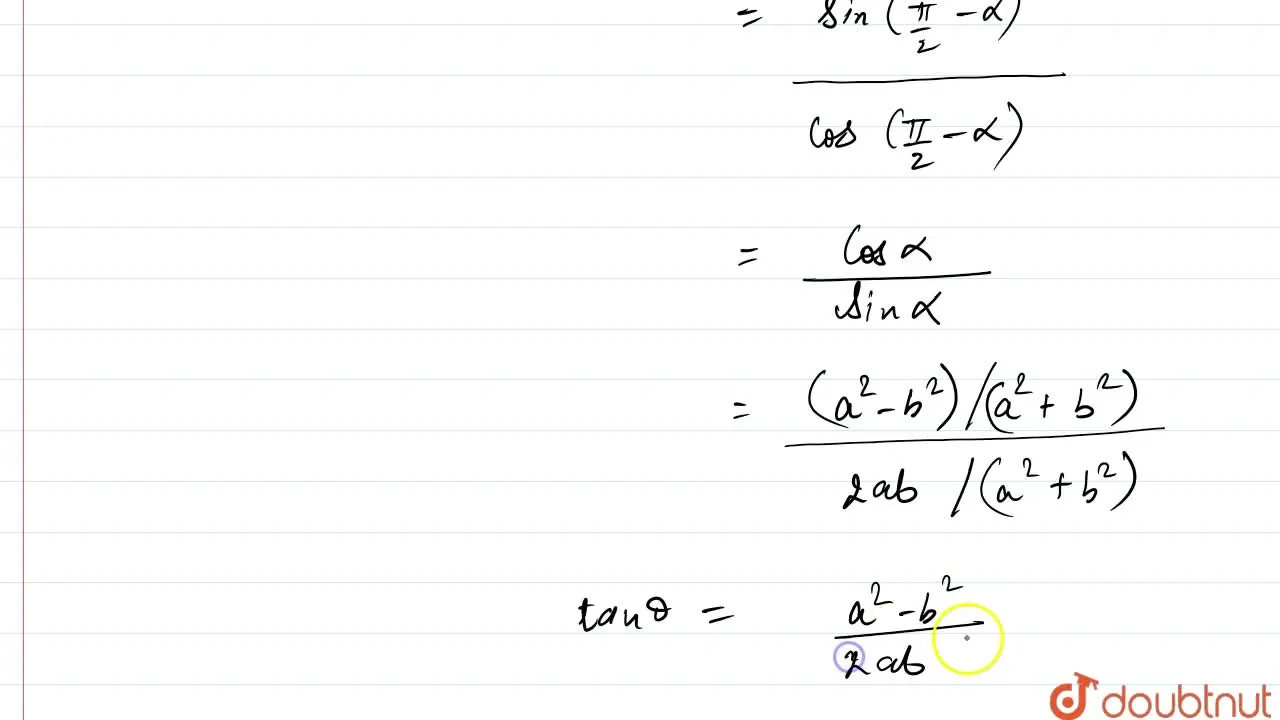 = sin (π/2 - α)
cos (π/2 - α)
= cos α
sin α
= (a² - b²) / (a² + b²)
2ab / (a² + b²)
tan θ = a² - b²
2ab
doubtnut